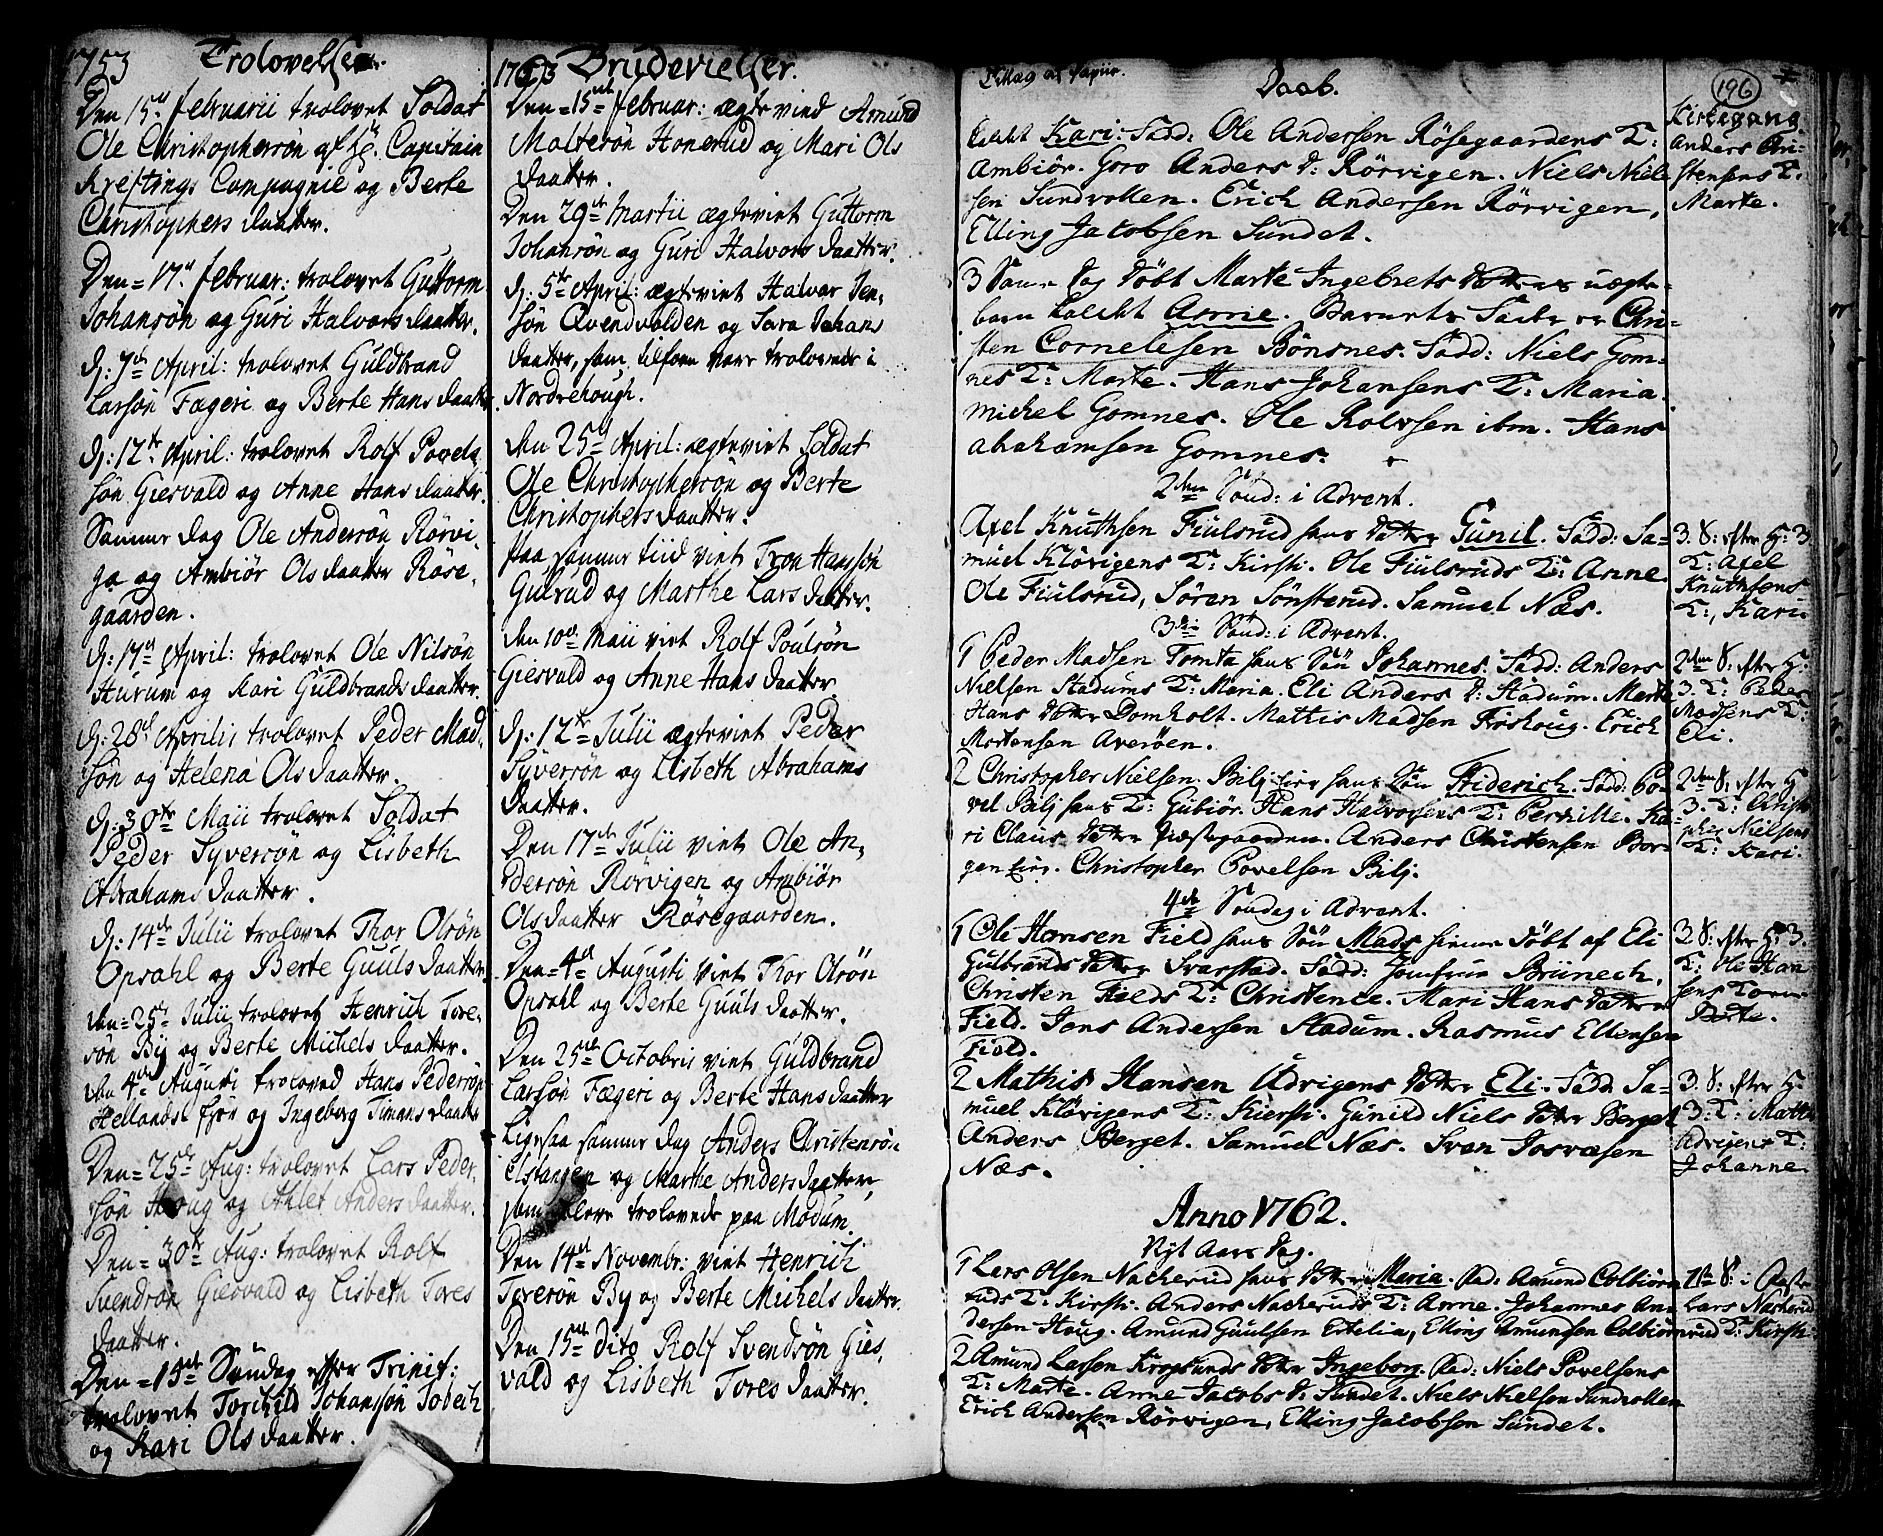 1753 Trolovelser.
Den 15de Februarii trolovet Soldat
Ole Christophersøn af Hr. Capitain
Kreftings Compagnie og Berte
Christophers daatter.
Den = 17de Februar: trolovet Guttorm
Johansøn og Guri Halvors daatter.
D: 7de April: trolovet Guldbrand
Larsøn Fægeri og Berte Hans daatter
D: 12te April: trolovet Rolf Povels
søn Giesvald og Anne Hans daatter.
Samme dag Ole Andersøn Rørvi-
gen og Ambiør Ols daatter Røse-
gaarden.
D: 17de April: trolovet Ole Nilsøn
Hurum og Kari Guldbrands daatter.
D: 28de Aprilis trolovet Peder Mad-
søn og Helena Ols daatter.
D: 30te Maii trolovet Soldat
Peder Syversøn og Lisbeth
Abrahams daatter.
D: 14de Julii trolovet Thor Olsøn
Opsahl og Berte Guuls daatter
den = 25de Julii trolovet Henrich Tore-
søn By og Berte Michels daatter.
den 4de Augusti troloved Hans Pedersøn
Hellands og Ingeborg Timans daatter
Den = 25de Aug: trolovet Lars Peder-
søn Houg og Ahlet Anders daatter.
Den = 30te Aug: trolovet Rolf
Svendsøn Giesvald og Lisbeth Tores
daatter.
Den = 13de Søndag efter Trinit:
trolovet Torchild Johansøn
og Kari Ols daatter.
1753 Brudevielser.
Den = 15de Februar: ægtevied Amund
Maltesøn Honerud og Mari Ols
daatter.
Den 29de Martii ægteviet Guttorm
Johansøn og Guri Halvors daatter.
D: 5te April: ægteviet Halvor Jen-
søn Qvendvolden og Sara Johans
daatter, som tilforn vare trolovede i
Nordrehough.
den 25de April: ægteviet Soldat
Ole Christophersøn og Berte
Christophers daatter.
Paa samme tiid viet Tron Hanssøn
Gulrud og Marthe Lars daatter.
den 10de Maii viet Rolf Poulsøn
Giesvald og Anne Hans daatter
D: 12te Julii ægteviet Peder
Syversøn og Lisbeth Abrahams
daatter.
Den 17de Julii viet Ole An-
dersøn Rørvigen og Ambiør
Ols daatter Røsegaarden.
Den = 4de Augusti viet Thor Olsøn
Opsahl og Berte Guuls daatter.
Den 25de Octobris viet Guldbrand
Larsøn Fægeri og Berte Hans daatter
Ligesaa samme dag Anders Christensøn
Elstangen og Marthe Anders daatter,
som blev trolovede paa Modum.
Den 14de Novembr: viet Henrich
Toresøn By og Berte Michels daatter.
Den 15de Dito Rolf Svendsøn Gies-
vald og Lisbeth Tores daatter.
Tillæg af Papiir. Daab. 196
kaldt Kari: Fadd: Ole Andersen Røsegaardens K:
Ambiør. Goro Anders d: Rørvigen. Niels Niel-
sen Sundvollen. Erich Andersen Rørvigen,
Elling Jacobsen Sundet.
3 Same dag døbt Marte Ingebrets datters uægte
barn kaldt Anne. Barnets Fader er Chri-
sten Cornelisen Bønsnes. Fadd: Niels Gom-
nes K: Marte. Hans Johansens K: Maria.
Michel Gomnes. Ole Rolvsen ibm. Hans
Abrahamsen Gomnes.
2den Sønd: i Advent.
Axel Knuthsen Fiulsrud hans datter Gunil. Fadd: Sa-
muel Kløvigens K: Kirsti. Ole Fiulsruds K: Anne
Ole Fiulsrud, Søren Sønsterud. Samuel Næs.
3die Sønd: i Advent.
1 Peder Madsen Tomta hans Søn Johannes. Fadd: Anders
Nielsen Stadums K: Maria. Eli Anders d: Stadum. Marte
Hans datter Domholt. Mathis Madsen Froshoug. Erich
Mortensen Averøen.
2 Christopher Nielsen Bilj hans Søn Friderich. Fadd: Po-
vel Bilj hans K: Gubiør. Hans Halvorsens K: Pernille. Ka-
ri Claus datter Præstegaarden. Anders Christensen Bor-
gen. Christopher Povelsen Bilj.
4de Søndag i Advent.
1 Ole Hansen Field hans Søn Mads hjemme døbt af Eli
Gulbrands datter Svarstad. Fadd: Jomfrue Brünech,
Christen Fields K: Christence. Mari Hans datter
Field. Jens Andersen Stadum. Rasmus Ellensen
Field.
2 Mathis Hansen Udvigens datter Eli. Fadd: Sa-
muel Kløvigens K: Kiersti. Gunild Niels datter Berget
Anders Berget. Samuel Næs. Sven Josvæsen
Næs.
Anno 1762.
Nyt Aars dag.
1 Lars Olsen Nackerud hans datter Maria. Fad: Amund Colbiørn-
ruds K: Kirsti. Anders Nackeruds K: Anne. Johannes An-
dersen Houg. Amund Guulsen Estelia, Elling Amundsen Colbiørnrud
2 Amund Larsen Krogsunds datter Ingeborg. Fad: Niels Povelsens
K: Marte. Anne Jacobs d: Sundet. Niels Nielsen Sundvollen
Erich Andersen Rørvigen, Elling Jacobsen Sundet.
Kirkegang.
Anders Chri-
stensens K:
Marte.
3. S: efter H: 3
K: Axel
Knuthsens
K: Kari.
2den S: efter H:
3. K: Peder
Madsens K:
Eli.
2den S: efter H:
3. K: Christo-
pher Nielsens
K: Kari.
3 S: efter H: 3.
K: Ole Han
sens Kone
Berte.
3. S: efter H:
3. K: Mathis
Udvigens K:
Johanne
1ste S: i Faste
Lars Nackerud
K: Kirsti